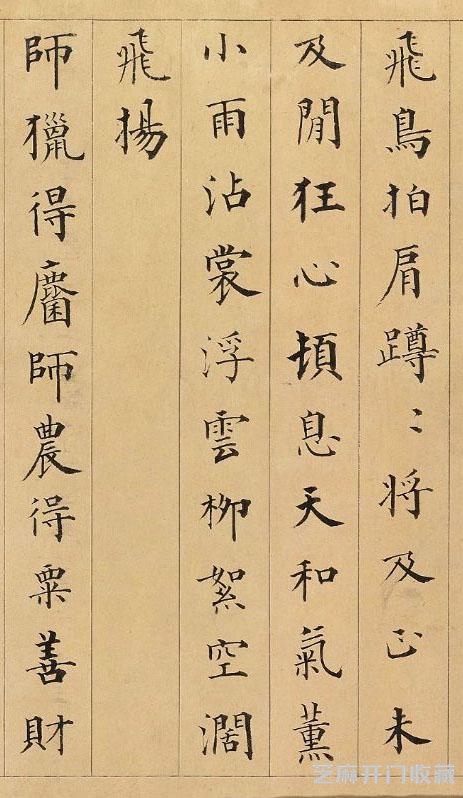 飛鳥拍肩蹲〻將及正未
及閒狂心頓息天和氣薰
小雨沾裳浮雲柳絮空濶
飛揚
師獵得麕師農得粟善財
芝麻开门收藏